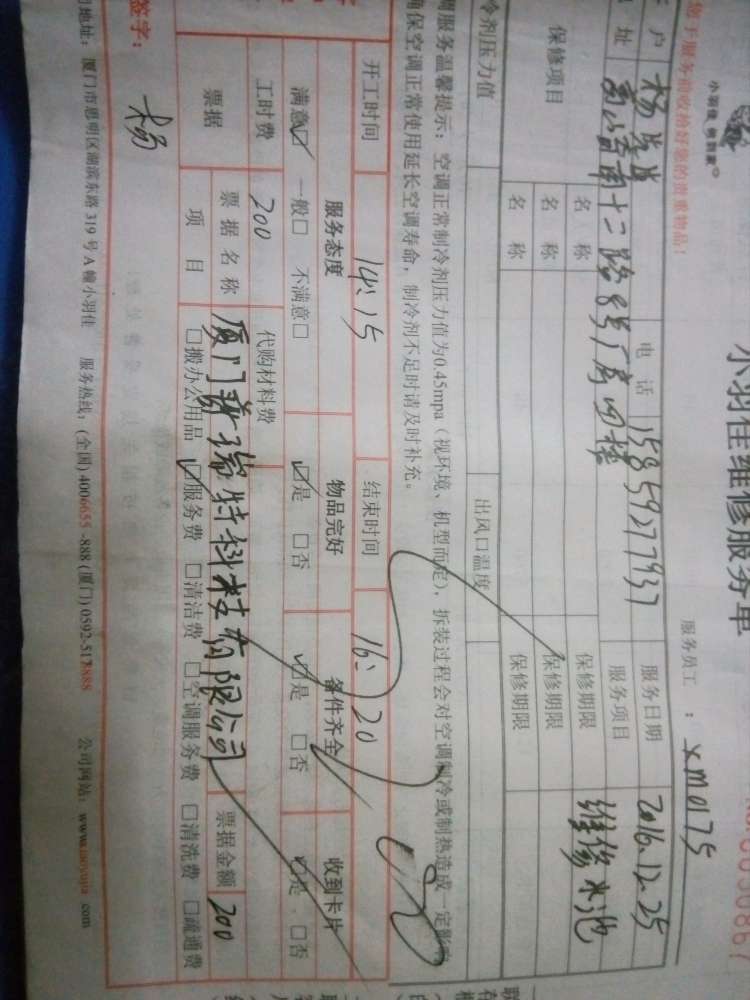 小羽佳维修服务单
小羽佳 做到家
您于服务前收拾好您的贵重物品！
服务员工：xm0175
户 杨 电话 15859277937 服务日期 2016.12.25
址 南十二路8号厂房四楼 服务项目 维修水池
保修项目 名称 保修期限
名称 保修期限
名称 保修期限
冷剂压力值 出风口温度
调服务温馨提示：空调正常制冷剂压力值为0.45mpa（视环境、机型而定），拆装过程会对空调制冷或制热造成一定影响
确保空调正常使用延长空调寿命，制冷剂不足时请及时补充。
开工时间 14:15 结束时间 16:20
服务态度 物品完好 备件齐全 收到卡片
满意☑ 一般□ 不满意□ ☑是 □否 ☑是 □否 ☑是 □否
工时费 200 代购材料费
票据 票据名称 厦门普瑞特科技有限公司 票据金额 200
项目 □搬办公用品 ☑服务费 □清洁费 □空调服务费 □清洗费 □疏通费
签字： 杨
司地址：厦门市思明区湖滨东路319号A幢小羽佳 服务热线：(全国) 4006655-888 (厦门) 0592-5178888 公司网站：www.xiaoyujia.com